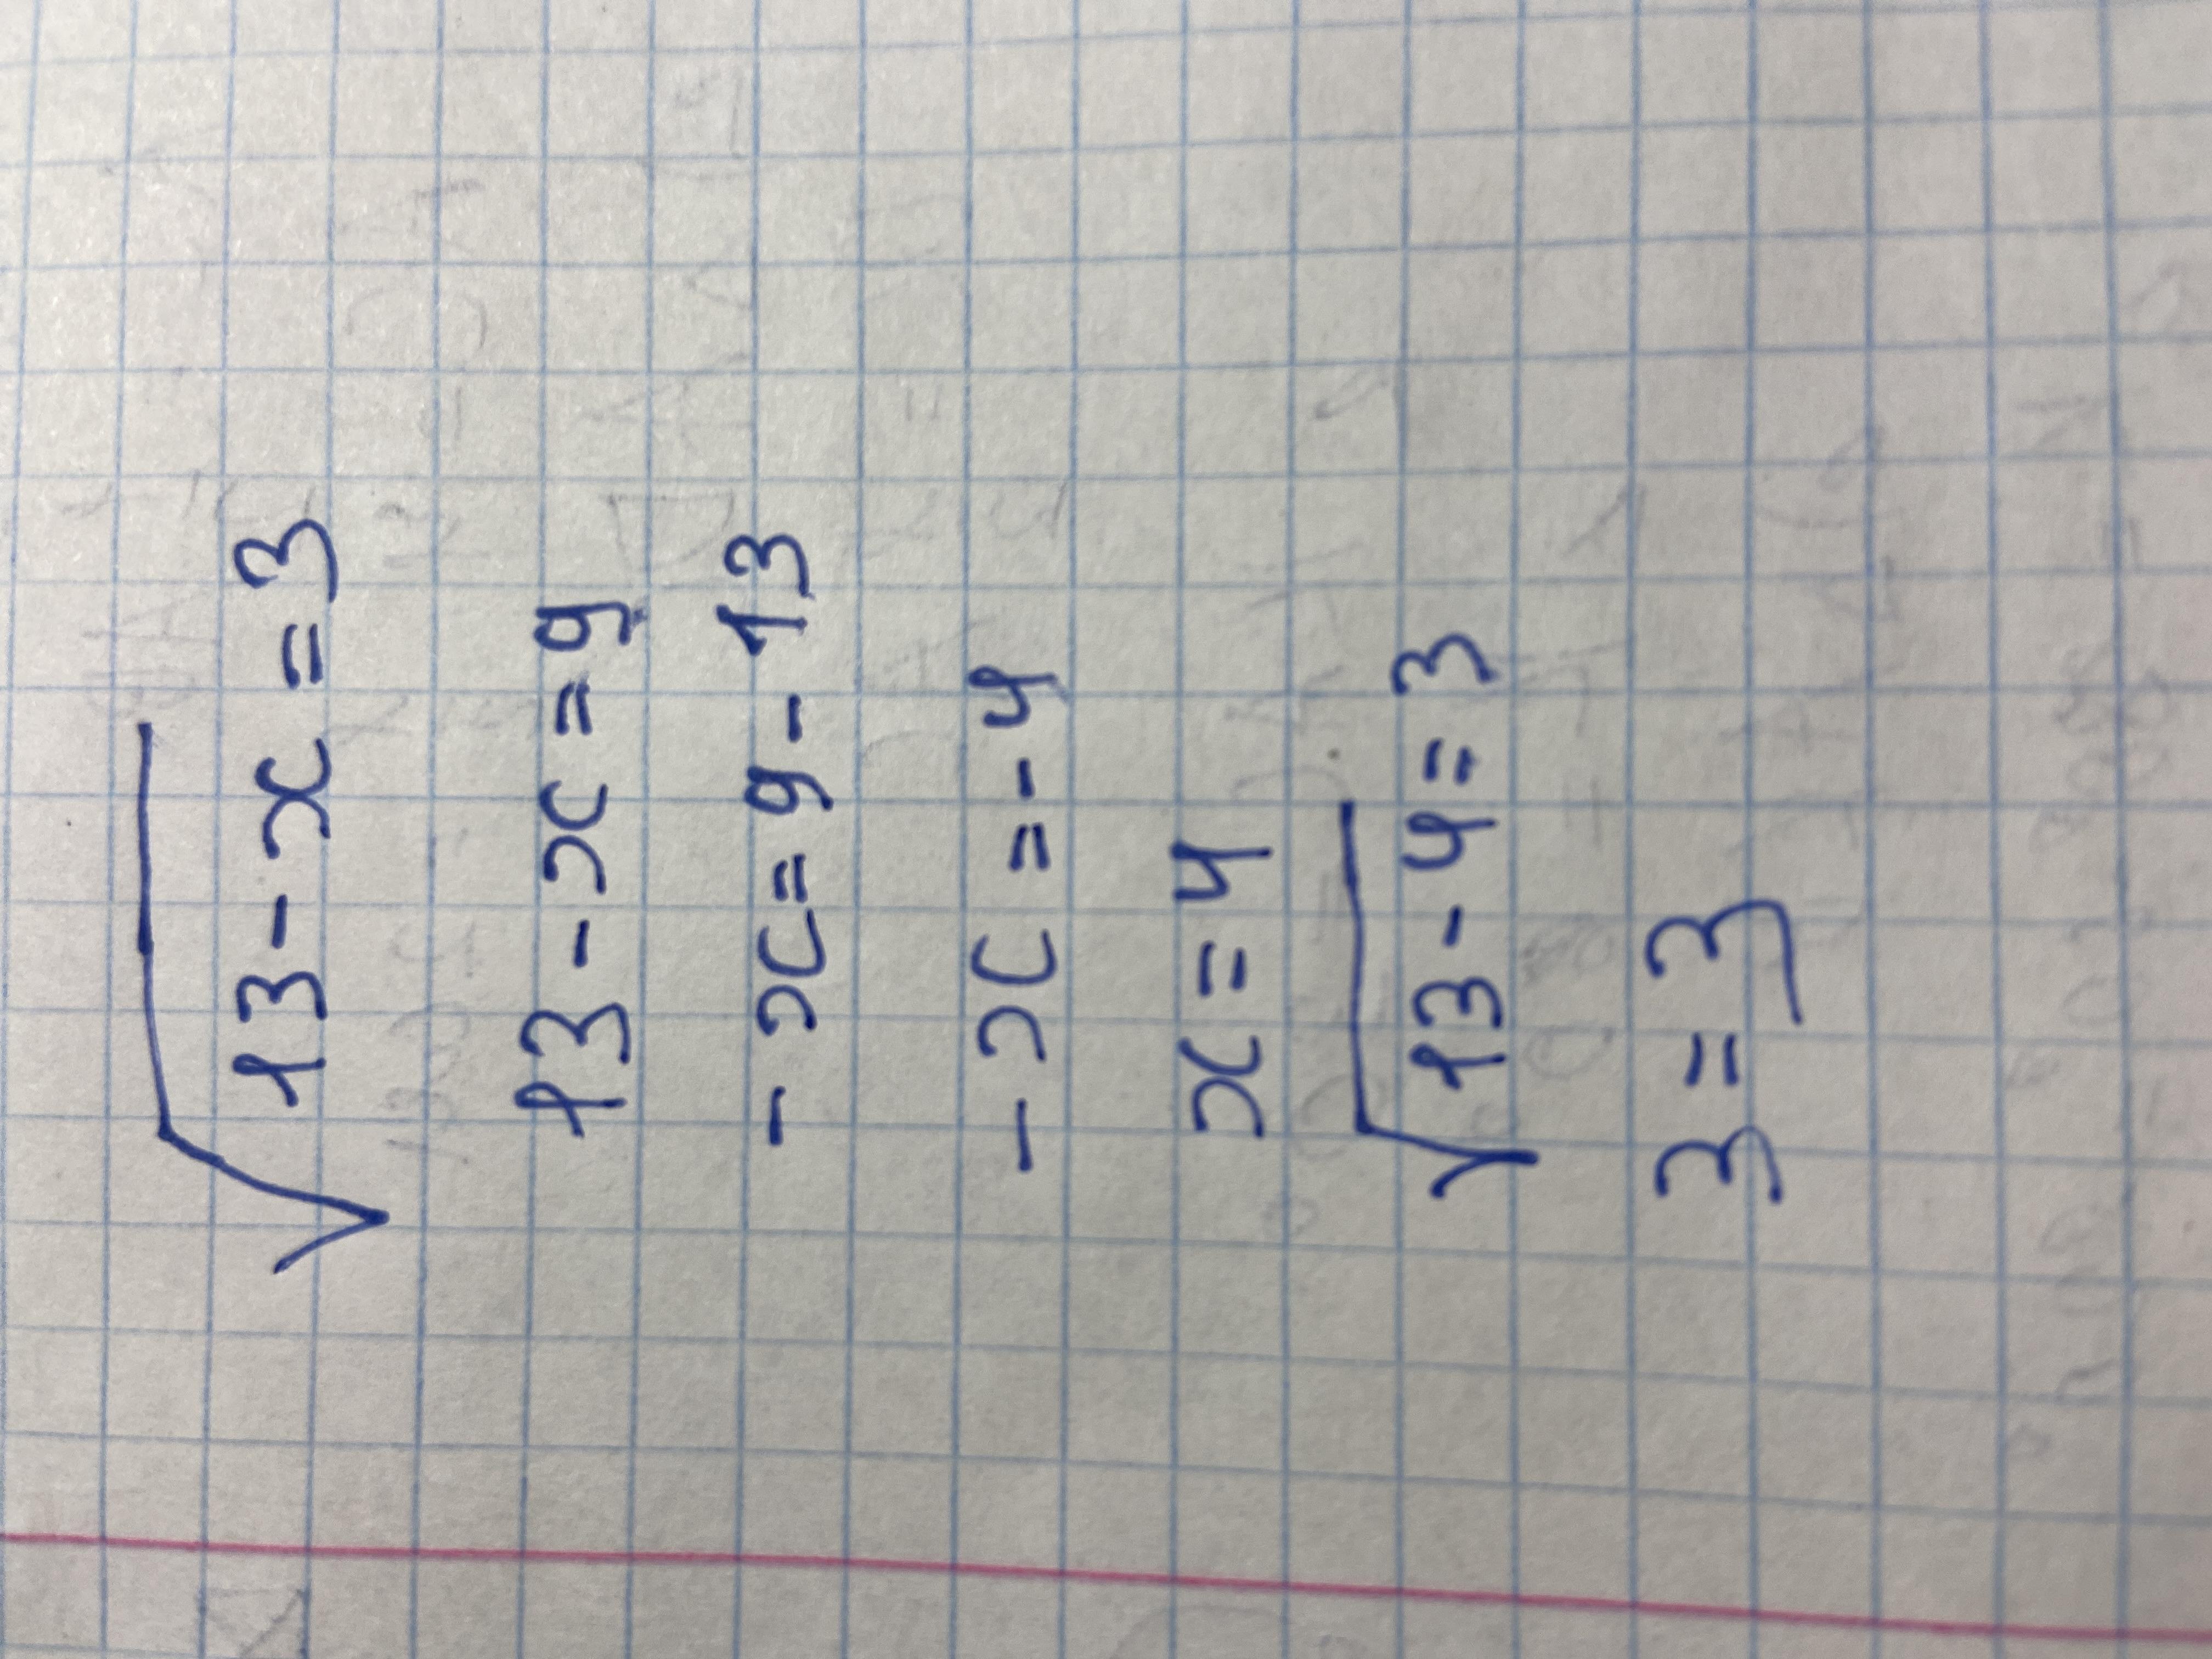 √13-x=3
13-x=9
-x=9-13
-x=-4
x=4
√13-4=3
3=3